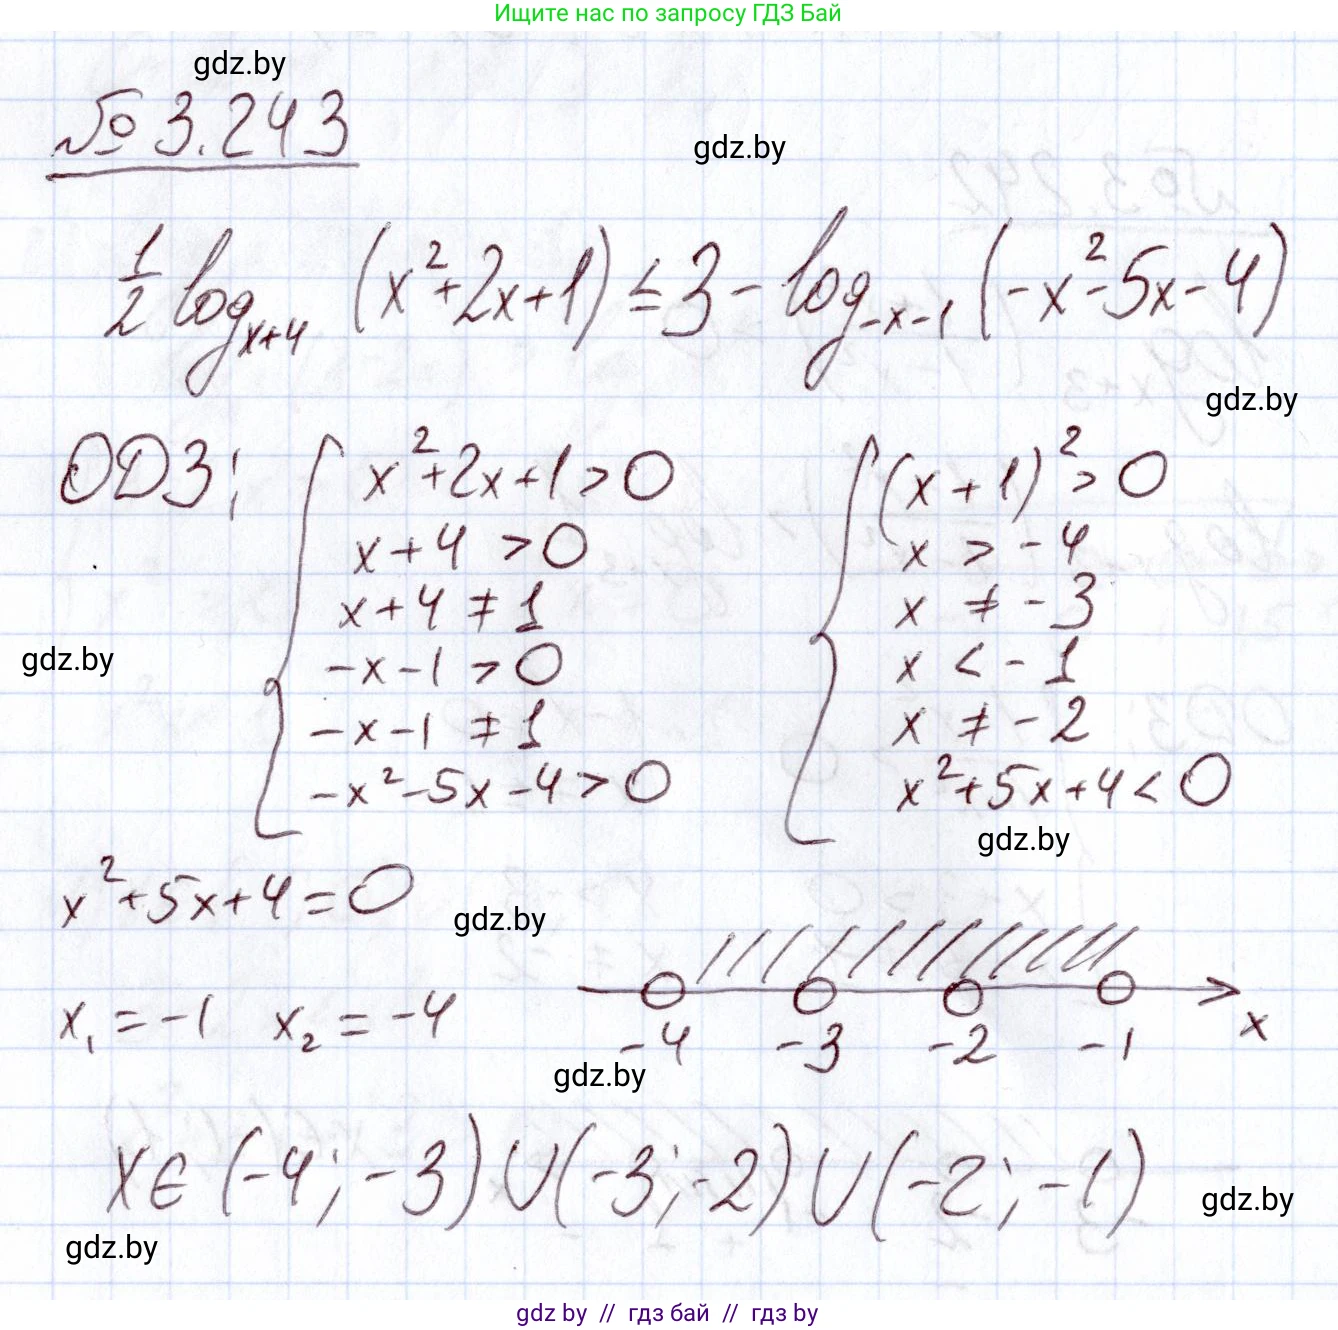 Ищите нас по запросу ГДЗ Бай
gdz.by
№ 3.243
gdz.by
1/2 log_{x+4} (x²+2x+1) ≤ 3 - log_{-x-1} (-x²-5x-4)
gdz.by
ОДЗ: { x²+2x+1 > 0 { (x+1)² > 0
x+4 > 0 x > -4
x+4 ≠ 1 x ≠ -3
gdz.by
-x-1 > 0 x < -1
-x-1 ≠ 1 x ≠ -2
-x²-5x-4 > 0 x²+5x+4 < 0
gdz.by
x²+5x+4=0
gdz.by
x₁ = -1 x₂ = -4
-4 -3 -2 -1 x
gdz.by
x ∈ (-4; -3) ∪ (-3; -2) ∪ (-2; -1)
gdz.by
gdz.by
gdz by // гдз бай // гдз by